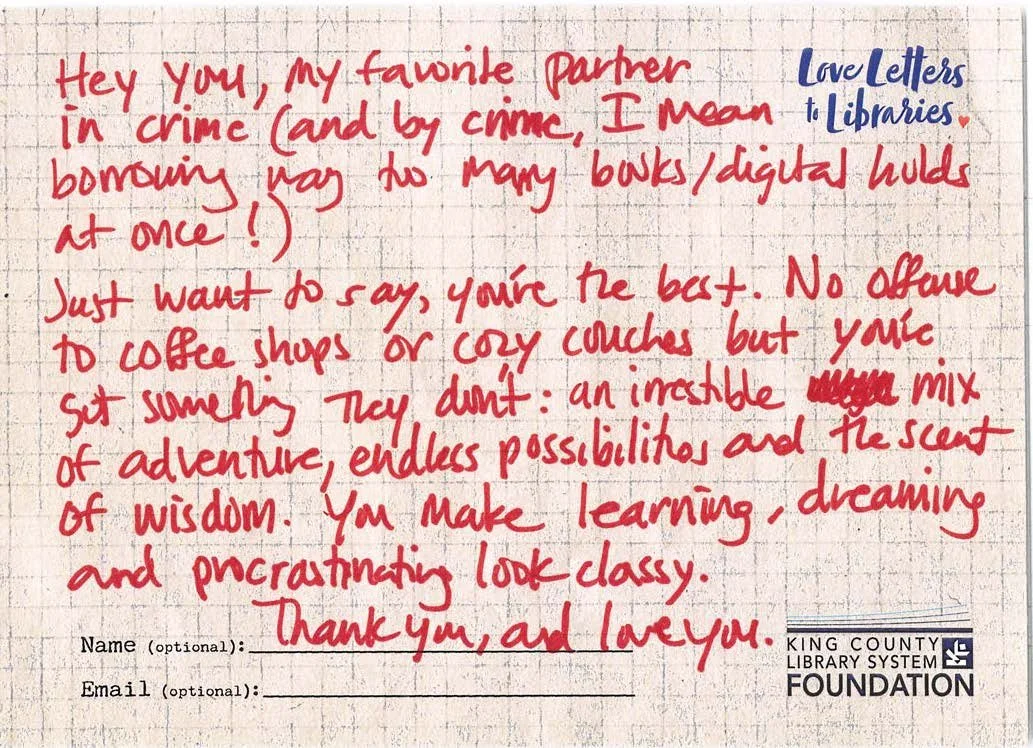 Hey you, my favorite partner
in crime (and by crime, I mean
borrowing way too many books/digital holds
at once!)
Just want to say, you're the best. No offense
to coffee shops or cozy couches but you've
got something they don't: an irrestible mix
of adventure, endless possibilities and the scent
of wisdom. You make learning, dreaming
and procrastinating look classy.
Thank you, and love you.
Love Letters
to Libraries
Name (optional):
Email (optional):
KING COUNTY
LIBRARY SYSTEM
FOUNDATION